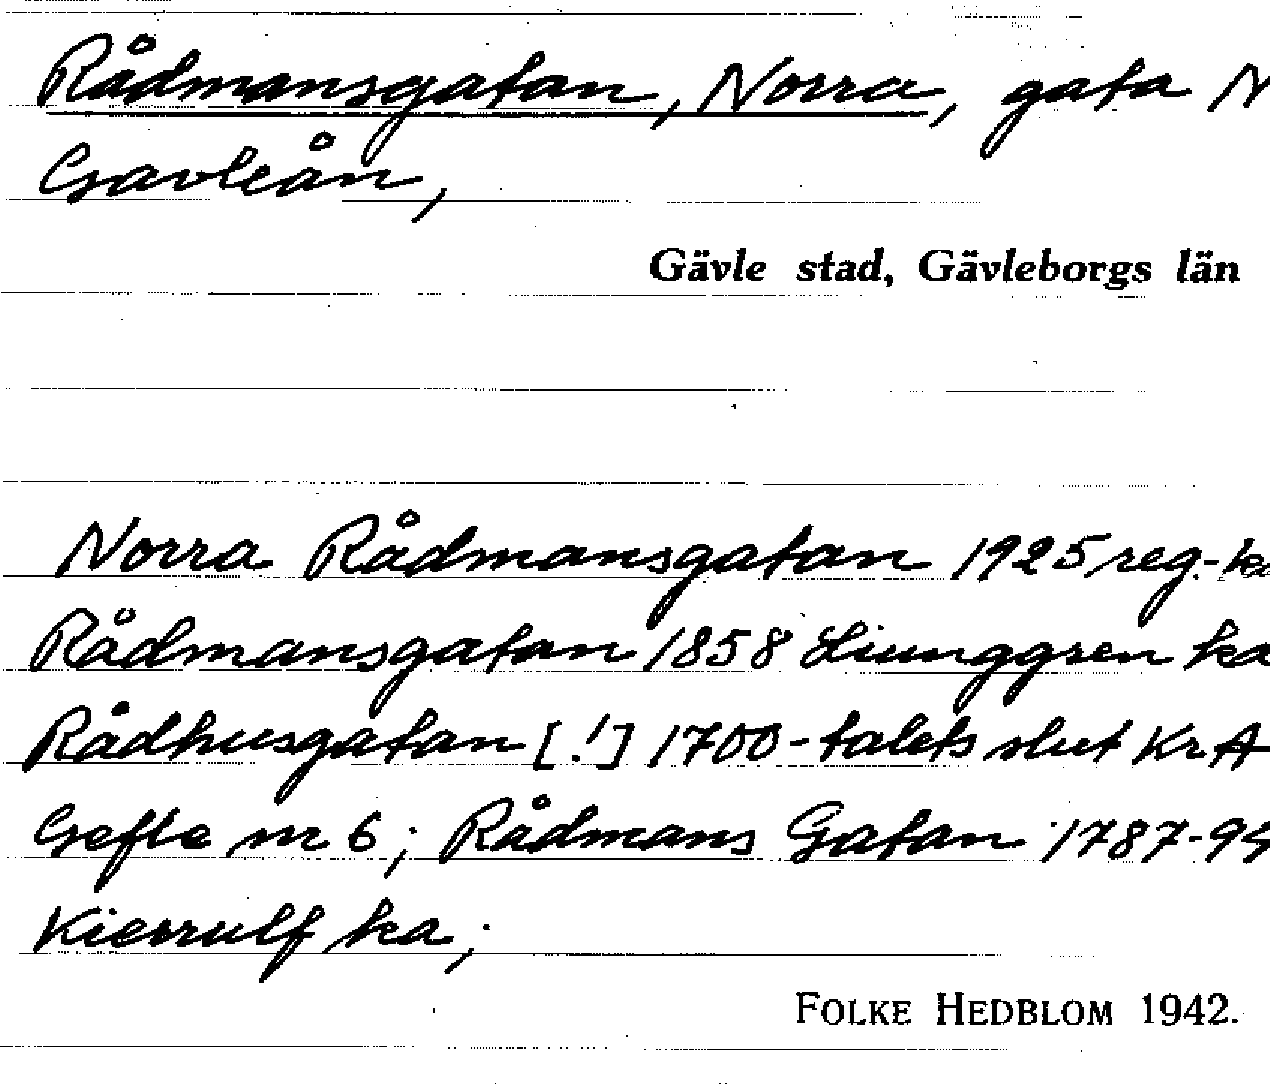 Rådmansgatan, Norra, gata N
Gavleån,
Gävle stad, Gävleborgs län
Norra Rådmansgatan 1925 reg.-ka
Rådmansgatan 1858 Liunggren ka
Rådhusgatan [!] 1700-talets slut KrA
Gefle nr 6; Rådmans Gatan 1787-99
Kierrulf ka;
FOLKE HEDBLOM 1942.